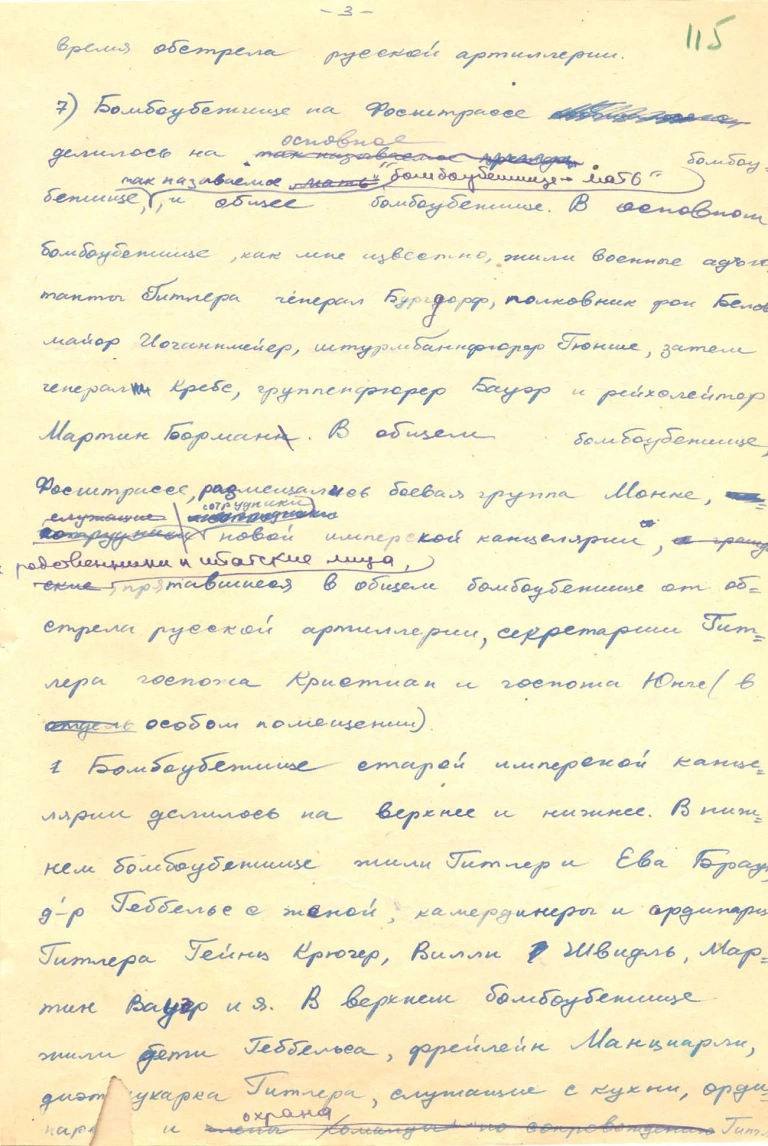 - 3 -
115
время обстрела русской артиллерии.
7) Бомбоубежище на Фосштрассе
основное
делилось на так называемое бомбоу=
так называемое „мать" "бомбоубежище-мать"
бежище, и общее бомбоубежище. В основном
бомбоубежище, как мне известно, жили военные адъю
танты Гитлера генерал Бургдорф, полковник фон Белов
майор Иоганнмейер, штурмбаннфюрер Гюнше, затем
генерал Кребс, группенфюрер Баур и рейхслейтер
Мартин Борман. В общем бомбоубежище,
Фосштрассе, размещались боевая группа Монке,
служащие сотрудники
сотрудники новой имперской канцелярии, и гражд
родственники и штатские лица,
ские, прятавшиеся в общем бомбоубежище от об=
стрела русской артиллерии, секретарши Гит=
лера госпожа Кристиан и госпожа Юнге (в
отдель особом помещении).
1 Бомбоубежище старой имперской канце=
лярии делилось на верхнее и нижнее. В ниж=
нем бомбоубежище жили Гитлер и Ева Браун,
д-р Геббельс с женой, камердинеры и ординарц
Гитлера Гейнц Крюгер, Вилли Швидль, Мар=
тин и я. В верхнем бомбоубежище
жили дети Геббельса, фрейлейн Манциарли,
кухарка Гитлера, служащие с кухни, орди=
охрана
нар и члены команды по сопровождению Гитл